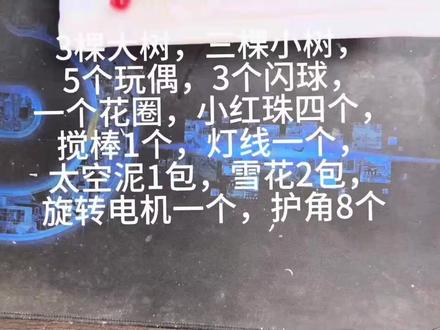 3棵大树，三棵小树，
5个玩偶，3个闪球，
一个花圈，小红珠四个，
搅棒1个，灯线一个，
太空泥1包，雪花2包，
旋转电机一个，护角8个